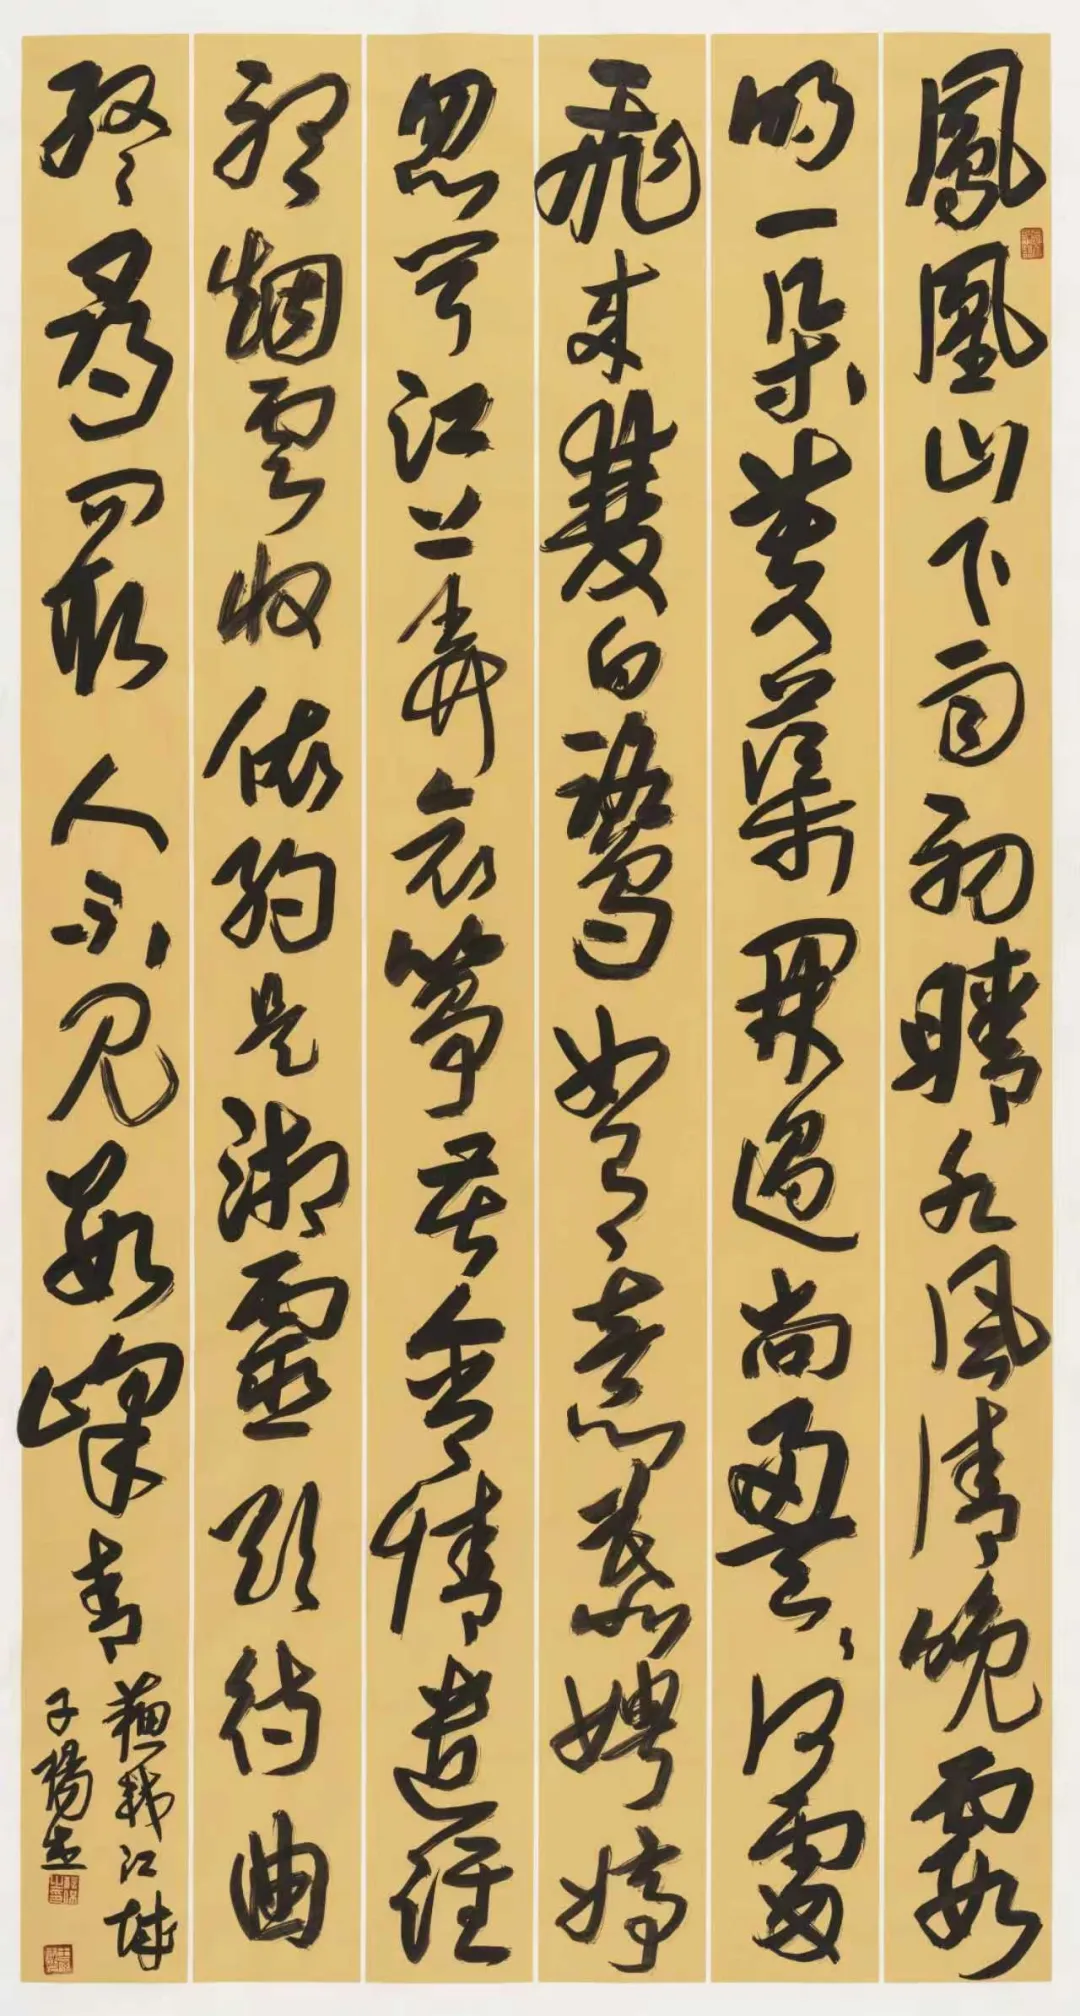 鳳凰山下雨初晴水風清晚霞
明一朵芙蕖開過尚盈々何處
飛來雙白鷺如有意慕娉婷
忽聞江上弄哀箏苦含情遣誰
聽烟雲收依約是湘靈欲待曲
終尋問取人不見數峰青
蘇軾江城
子